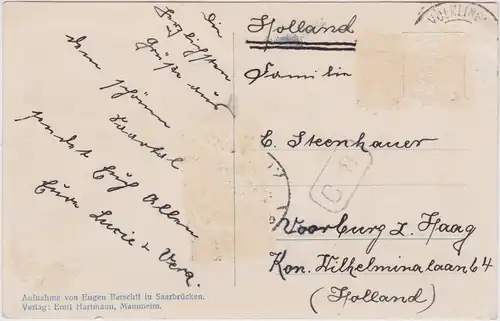 Die
herzlichsten
Grüße aus
dem schönen
Saartal
sendet Euch Allen
Eure Lucie & Vera.
Aufnahme von Eugen Berschtl in Saarbrücken.
Verlag: Emil Hartmann, Mannheim.
VÖLKLIN
Holland
Familie
E. Steenhauer
Voorburg z. Haag
Kon. Wilhelminalaan 64
(Holland)